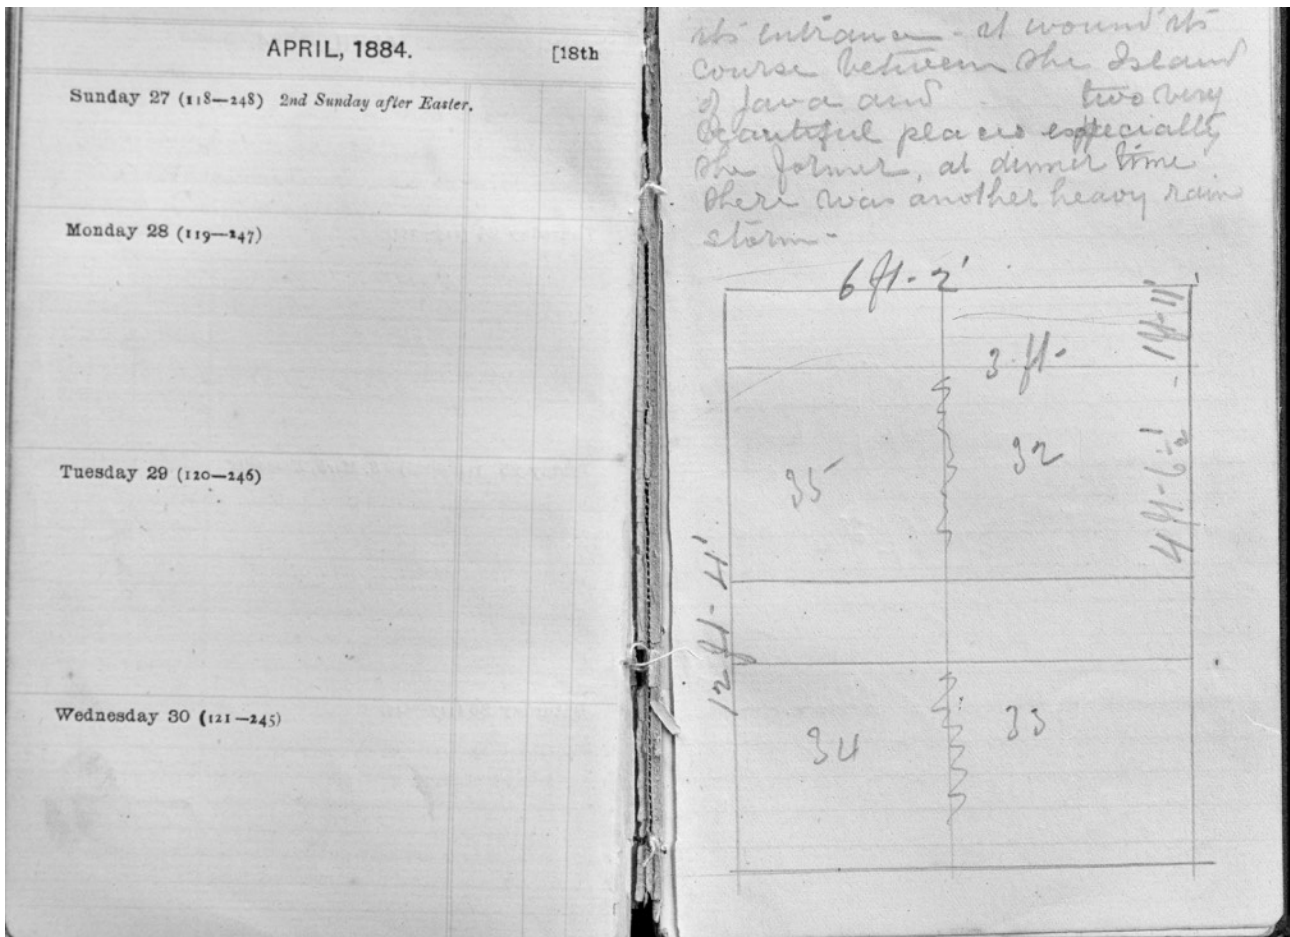 APRIL, 1884. [18th
Sunday 27 (118—248) 2nd Sunday after Easter.
Monday 28 (119—247)
Tuesday 29 (120—246)
Wednesday 30 (121—245)
its entrance - it wound its
course between the Island
of Java and . two very
beautiful places especially
the former, at dinner time
there was another heavy rain
storm -
6 ft - 2'
1 ft - 11'
3 ft -
35
32
4 ft - 6 1/2'
12 ft - 4'
34
33